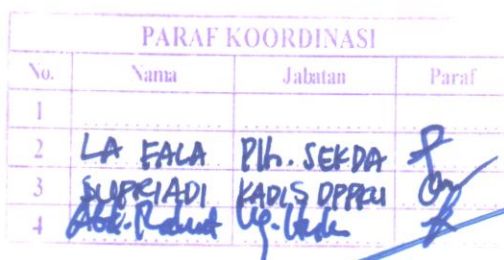 PARAF KOORDINASI
No. Nama Jabatan Paraf
1
2 LA FALA Plh. SEKDA
3 SUPRIADI KADIS DPPKU
4